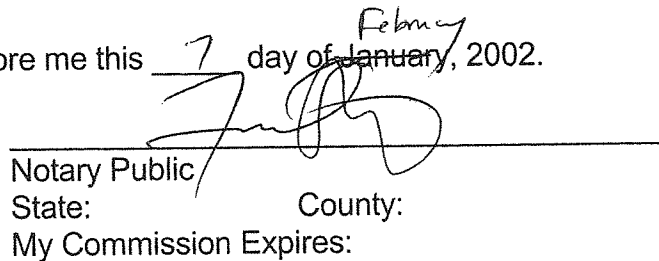 February
ore me this 7 day of January, 2002.
Notary Public
State: County:
My Commission Expires: